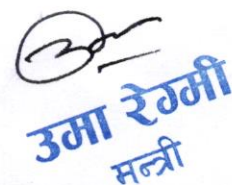 उमा रेग्मी
मन्त्री